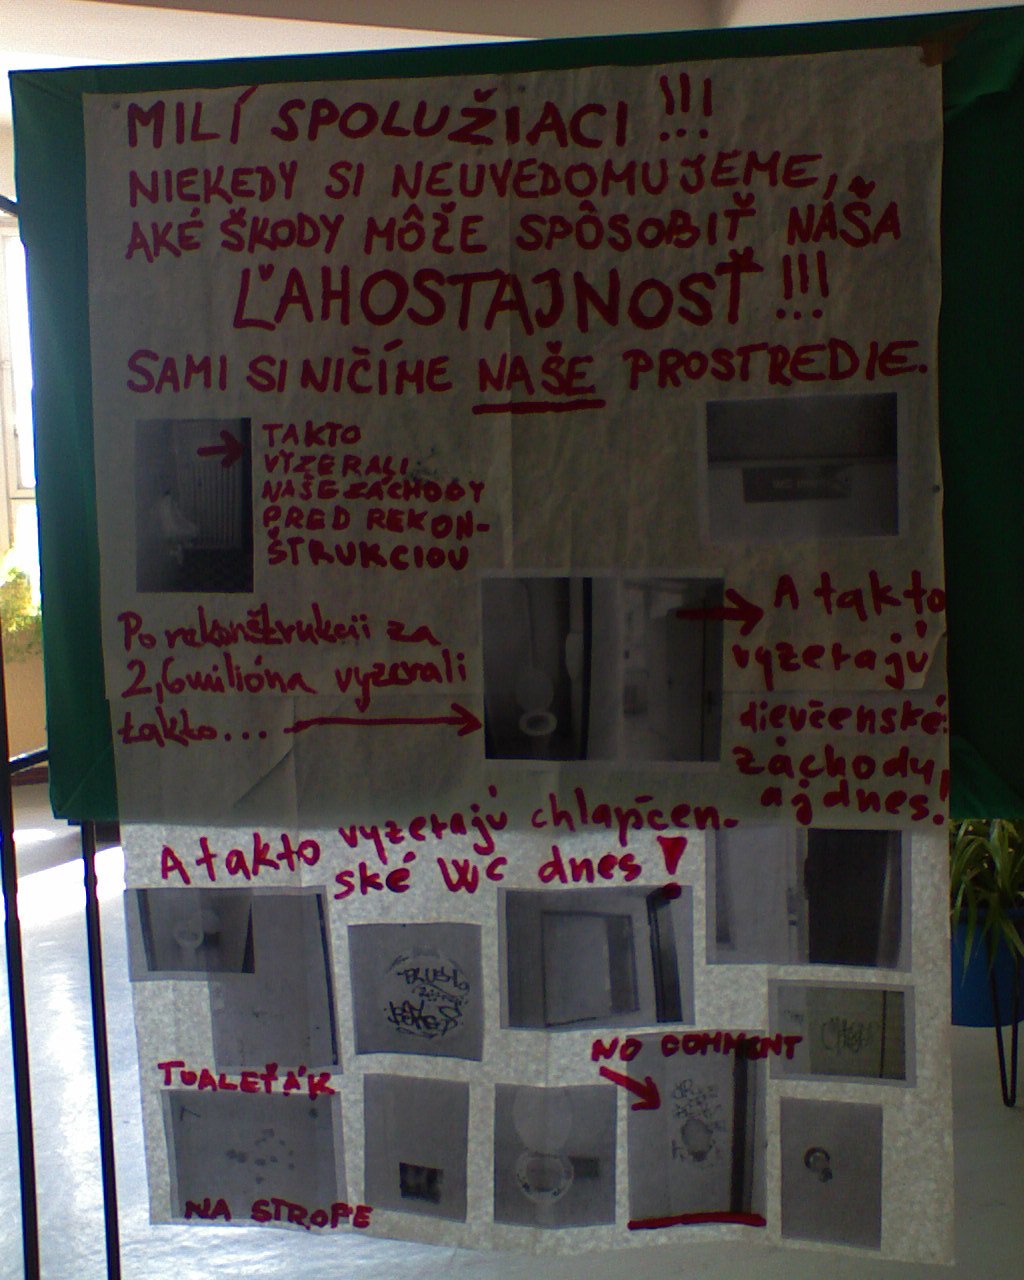 MILÍ SPOLUŽIACI !!!
NIEKEDY SI NEUVEDOMUJEME,
AKÉ ŠKODY MÔŽE SPÔSOBIŤ NAŠA
ĽAHOSTAJNOSŤ !!!
SAMI SI NIČÍME NAŠE PROSTREDIE.
TAKTO
VYZERALI
NAŠE ZÁCHODY
PRED REKON-
ŠTRUKCIOU
Po rekonštrukcii za
2,6 milióna vyzerali
takto...
A takto
vyzerajú
dievčenské
záchody,
aj dnes!
A takto vyzerajú chlapčen-
ské WC dnes !
NO COMMENT
TOALEŤÁK
NA STROPE